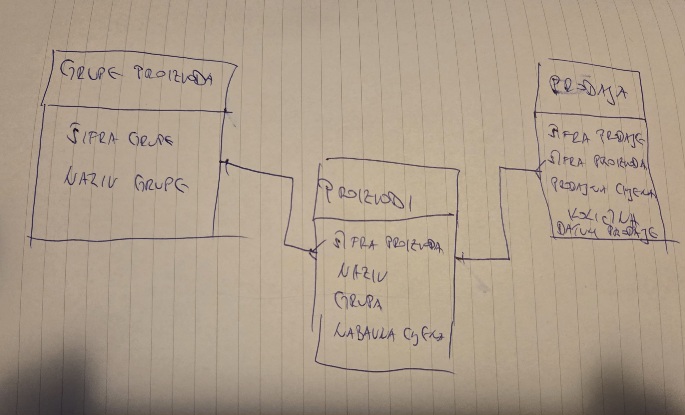 GRUPE PROIZVODA
ŠIFRA GRUPE
NAZIV GRUPE
PROIZVODI
ŠIFRA PROIZVODA
NAZIV
GRUPA
NABAVNA CIJENA
PRODAJA
ŠIFRA PRODAJE
ŠIFRA PROIZVODA
PRODAJNA CIJENA
KOLIČINA
DATUM PRODAJE